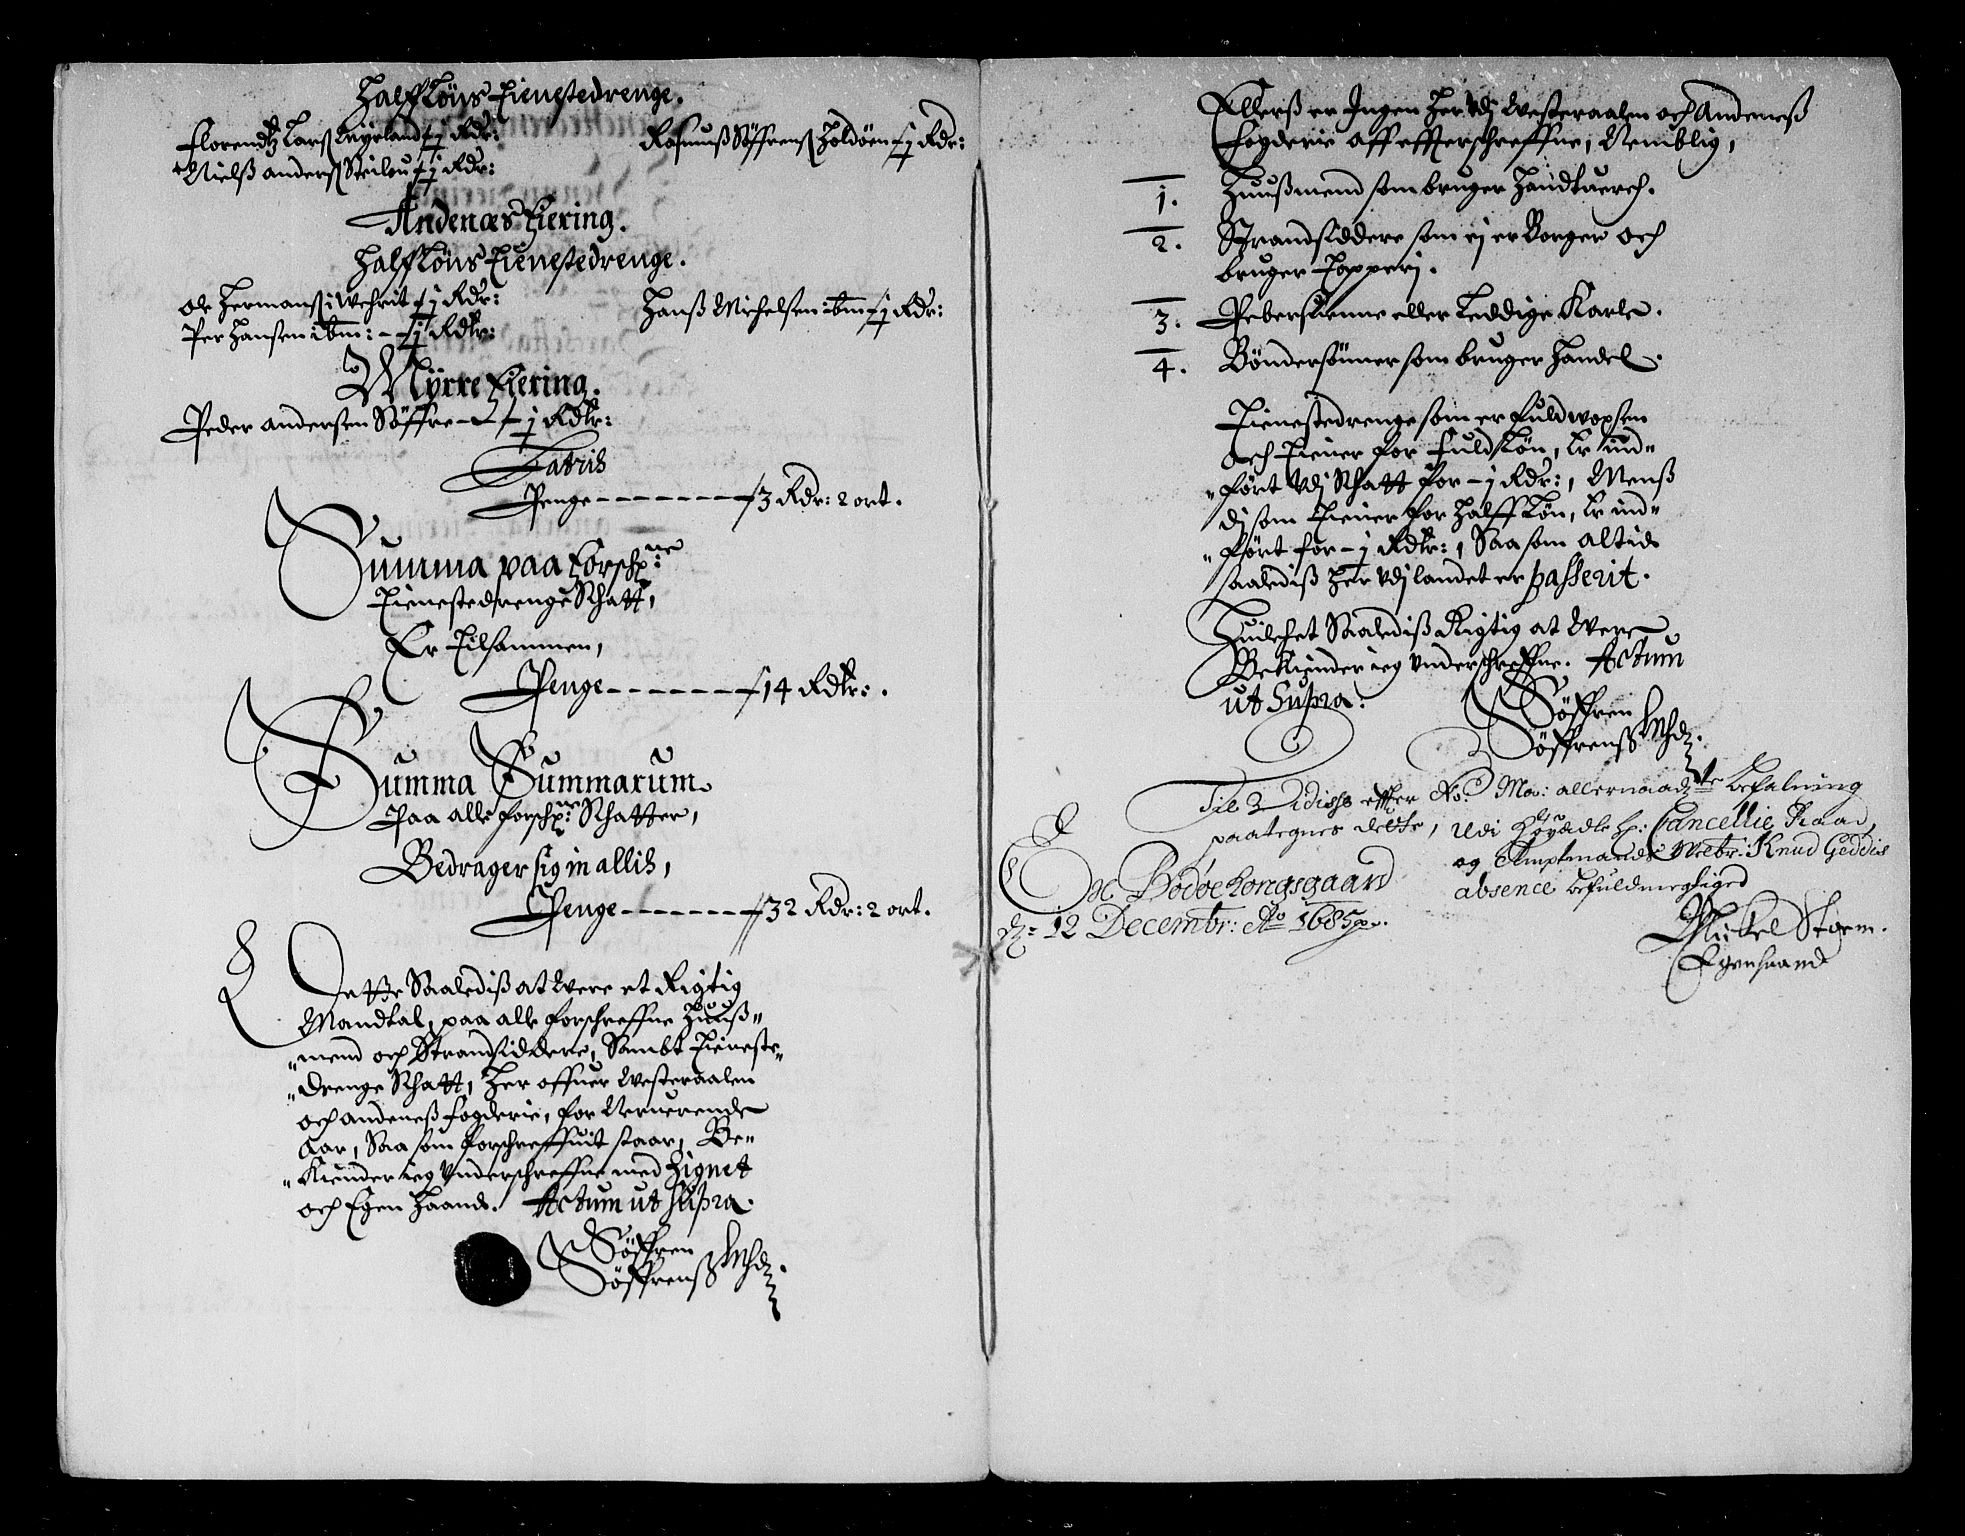 Halff Löns Tienestedrenge.
Florendtz Larß Myrland ½ Rdr:
Rasmuß Söffrenß Holdöen ½ Rdr:
Nielß Anderß Steilou ½ Rdr:
Andenæs Fiering.
Halff Löns Tienestedrenge.
Ole Hermanß i Wehrit ½ Rdr:
Hanß Michelsen ibm ½ Rdr:
Per Hansen ibm: – ½ Rdlr:
Myrre Fiering.
Peder Andersen Söffre – ½ Rdlr:
Latris
Penge – – – – – – – 3 Rdr: 2 ort.
Summa paa Forschp:ne
Tienestedrenge Schatt,
Er Tilsammen,
Penge – – – – – – 14 Rdlr:.
Summa Summarum
Paa alle forschp:ne Schatter,
Bedrager sig in allis,
Penge – – – – – – – 32 Rdr: 2 ort.
Dette Saalediß at Were et Rigtig
Mandtal, paa alle forschreffne Huuß„
„mend och Strandsiddere, Sambt Tieneste„
„drenge Schatt, Her offuer Westeraalen
och Andeneß fogderie, for Neruerende
Aar, Saa som forschreffuit staar, Be„
„Kiender ieg Vnderschreffne med Zignet
och Egen Haand. Actum ut supra.
Söffren
Söffrenß Mhd.
Ellerß er Ingen Her Vdj Westeraalen och Andeneß
Fogderie aff effterschreffne, Nemblig,
1. Huußmend som bruger Handtuerch.
2. Strandsiddere som ej er Borger och
bruger Topperj.
3. Pebersuenne eller Leddige Karle.
4. Böndersönner som bruger Handel.
Tienestedrenge som er fuldwoxsen
och Tiener for Fuld Lön, Er ind„
„fört Vdj Schatt for – j Rdr:, Menß
di som Tiener for Halff Lön, Er ind„
„fört for – ½ Rdlr:, Saa som altid
saalediß Her Vdj landet er passerit.
Huilchet Saalediß Rigtig at Were
Bekiender ieg Vnderschreffne. Actum
ut Supra.
Söffren
Söffrenß Mhd.
Til 3 Vidisse effter Ko: Ma: allernaadigste befalning
paategnes dette, Udi Høyædle Hr: Cancellie Raad
og Amptmands Welbr: Knud Geddis
absence befuldmegtiged
Bodøe Kongsgaard
d: 12 Decembr: Ao 1685
Mickel Storm.
Egenhaand